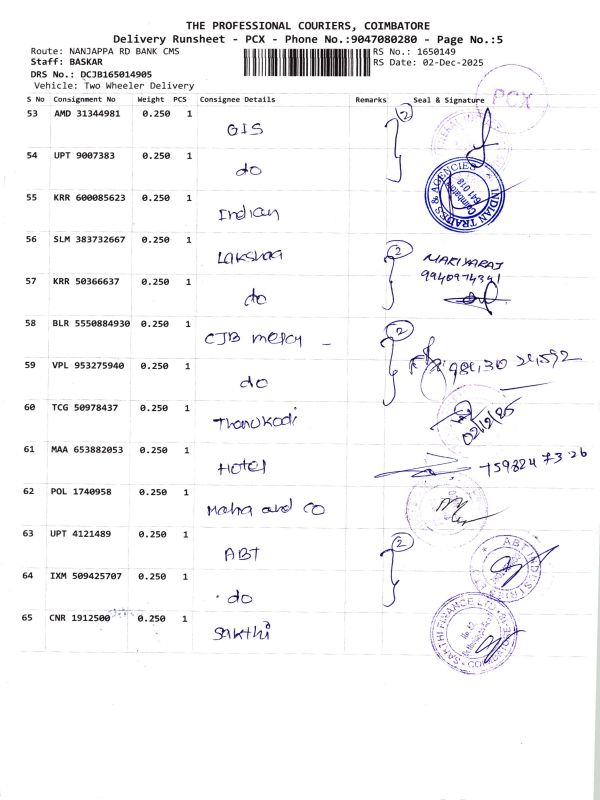 THE PROFESSIONAL COURIERS, COIMBATORE
Delivery Runsheet - PCX - Phone No.:9047080280 - Page No.:5
Route: NANJAPPA RD BANK CMS
RS No.: 1650149
Staff: BASKAR
RS Date: 02-Dec-2025
DRS No.: DCJB165014905
Vehicle: Two Wheeler Delivery
S No Consignment No Weight PCS Consignee Details Remarks Seal & Signature
PCX
53 AMD 31344981 0.250 1 GIS 2
54 UPT 9007383 0.250 1 do
INDIAN TRADES & AGENCIES Coimbatore 641 018
55 KRR 600085623 0.250 1 Indian
56 SLM 383732667 0.250 1 2
MARIYARAJ
9940974341
57 KRR 50366637 0.250 1 do
58 BLR 5550884930 0.250 1 CJB mercy - 2
59 VPL 953275940 0.250 1 do
60 TCG 50978437 0.250 1
02/12/25
61 MAA 653882053 0.250 1 Hotel 7598247326
62 POL 1740958 0.250 1 Maha and co
63 UPT 4121489 0.250 1 ABT 2
ABT INDUSTRIES LTD
64 IXM 509425707 0.250 1 do
65 CNR 1912500 0.250 1 Sakthi
SAKTHI FINANCE LTD COIMBATORE-18